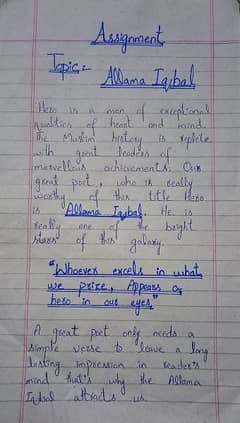 Assignment
Topic:- Allama Iqbal
Hero is a man of exceptional
qualities of heart and mind.
The Muslim history is replete
with great leaders of
marvellous achievements. Our
great poet, who is really
worthy of this title Hero
is Allama Iqbal. He is
really one of the bright
stars of this galaxy.
"Whoever excels in what
we prize, Appears a
hero in our eyes"
A great poet only needs a
simple verse to leave a long
lasting impression in reader's
mind that's why the Allama
Iqbal attracts us.